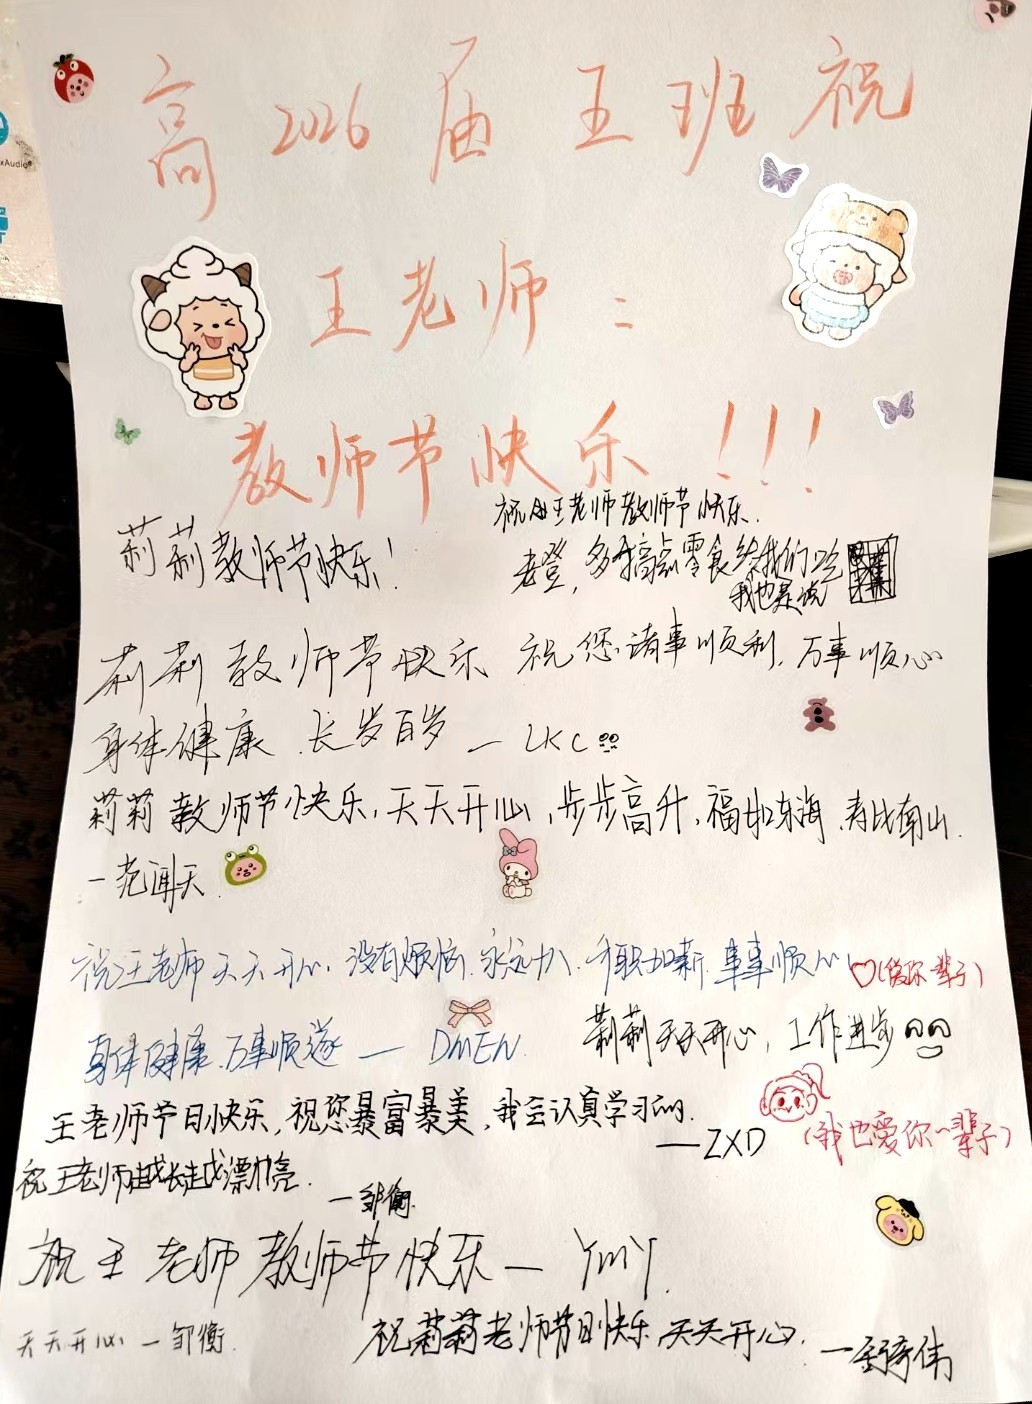 xAudio
高2026届王班祝
王老师：
教师节快乐!!!
祝由王老师教师节快乐.
莉莉教师节快乐!
老登,多搞点零食给我们吃
我也是说
莉莉教师节快乐 祝您诸事顺利,万事顺心
身体健康.长岁百岁 — LKC
莉莉教师节快乐,天天开心,步步高升,福如东海,寿比南山.
—范闻天
祝汪老师天天开心.没有烦恼.永远十八.升职加薪.事事顺心
(爱你一辈子)
身体健康.万事顺遂 — DMEN.
莉莉天天开心,工作进步
王老师节日快乐,祝您暴富暴美,我会认真学习的.
—ZXD
(我也爱你一辈子)
祝王老师越长越漂亮.
—邹衡.
祝王老师教师节快乐— YmY.
天天开心 —邹衡.
祝莉莉老师节日快乐 天天开心.